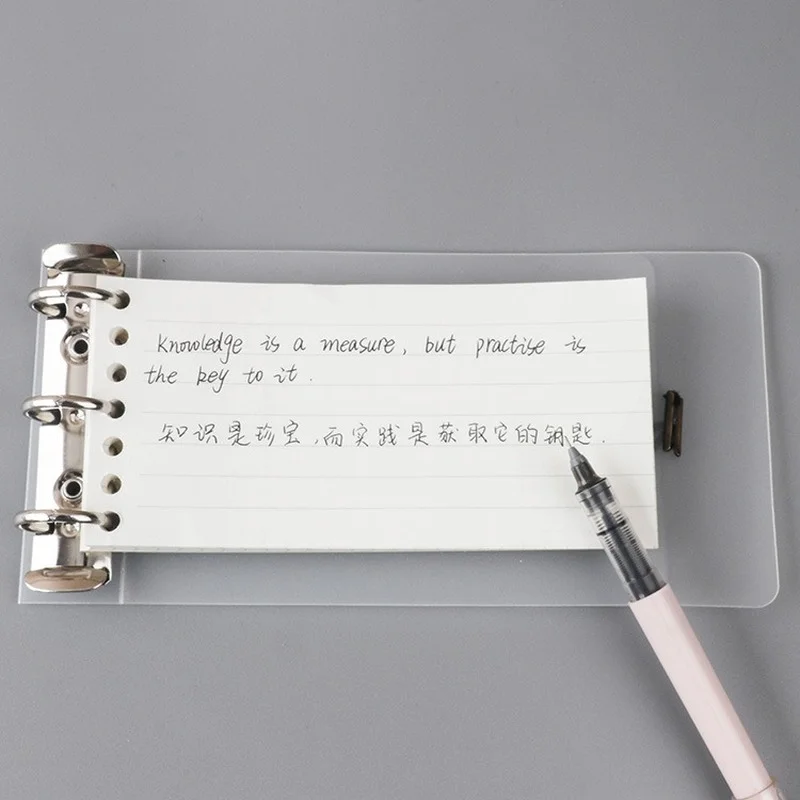 Knowledge is a measure, but practise is
the key to it.
知识是珍宝,而实践是获取它的钥匙.